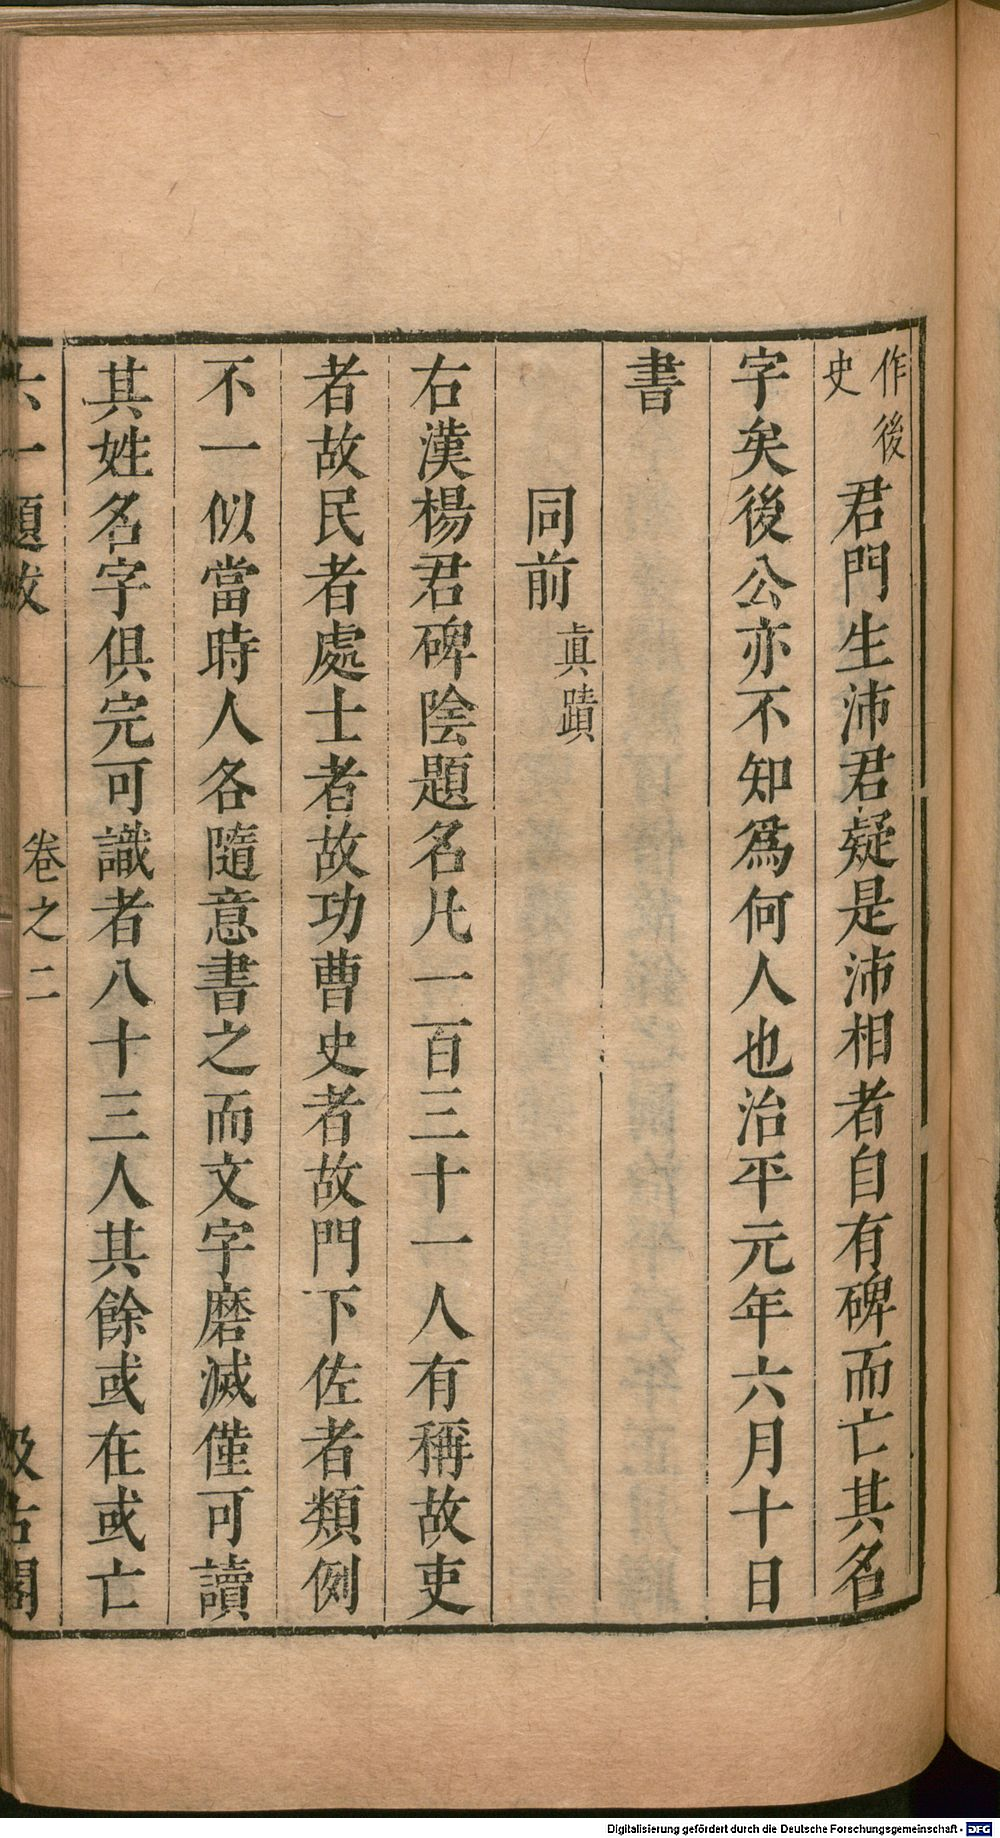 作後史君門生沛君疑是沛相者自有碑而亡其名
字矣後公亦不知爲何人也治平元年六月十日
書
同前眞蹟
右漢楊君碑陰題名凡一百三十一人有稱故吏
者故民者處士者故功曹史者故門下佐者類例
不一似當時人各隨意書之而文字磨滅僅可讀
其姓名字俱完可識者八十三人其餘或在或亡
六一題跋 卷之二 汲古閣
Digitalisierung gefördert durch die Deutsche Forschungsgemeinschaft - DFG